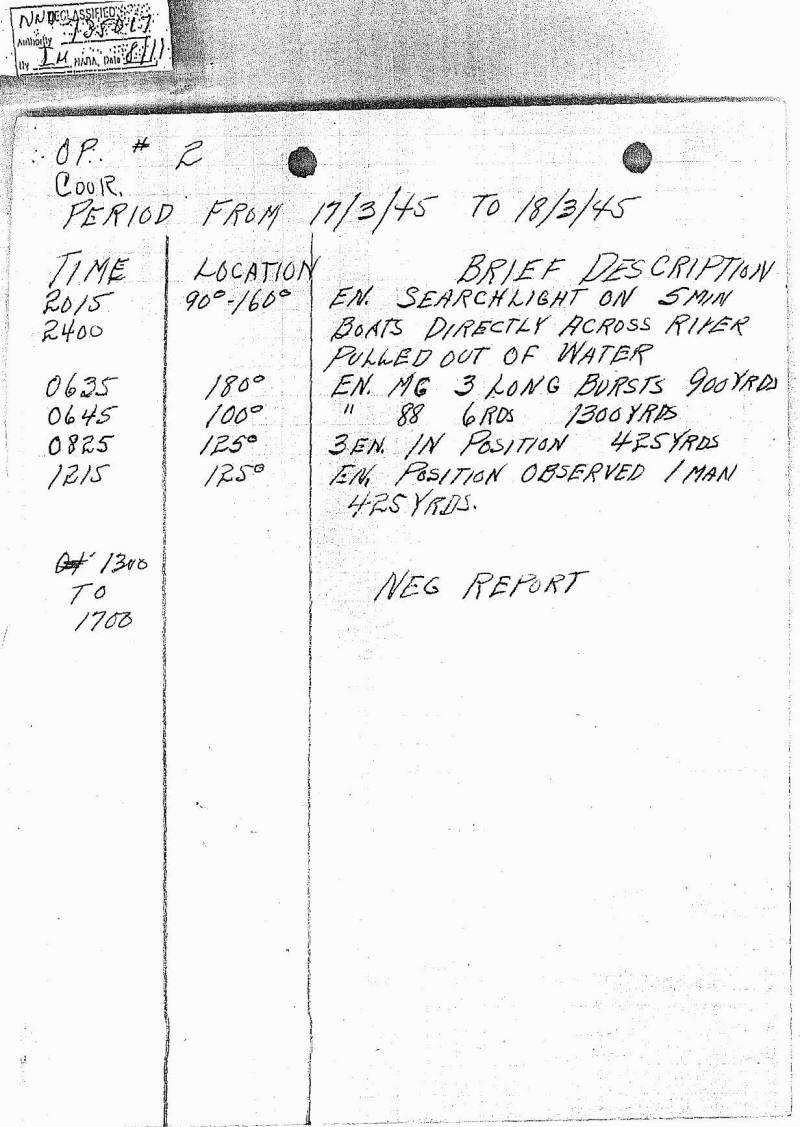 DECLASSIFIED
Authority
By NARA, Date
OP. # 2
COOR.
PERIOD FROM 17/3/45 TO 18/3/45
TIME LOCATION BRIEF DESCRIPTION
2015 90°-160° EN. SEARCHLIGHT ON 5 MIN
2400 BOATS DIRECTLY ACROSS RIVER
PULLED OUT OF WATER
0635 180° EN. MG 3 LONG BURSTS 900 YRDS
0645 100° " 88 6 RDS 1300 YRDS
0825 125° 3 EN. IN POSITION 425 YRDS
1215 125° EN. POSITION OBSERVED 1 MAN
425 YRDS.
1300
TO NEG REPORT
1700